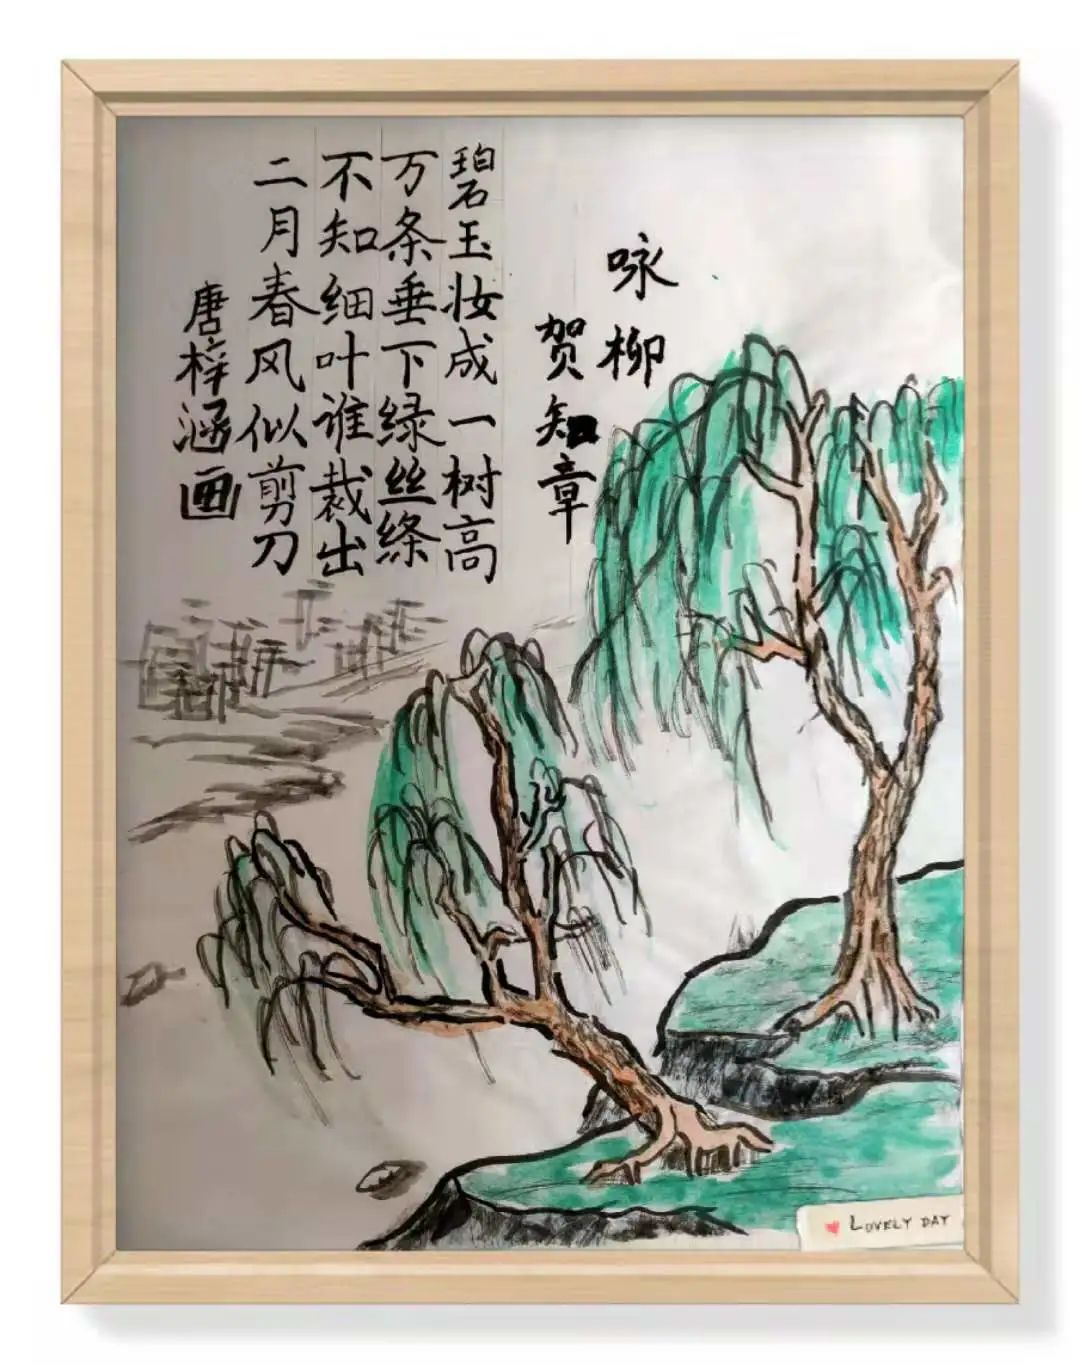 咏柳
贺知章
碧玉妆成一树高
万条垂下绿丝绦
不知细叶谁裁出
二月春风似剪刀
唐梓涵画
LOVELY DAY